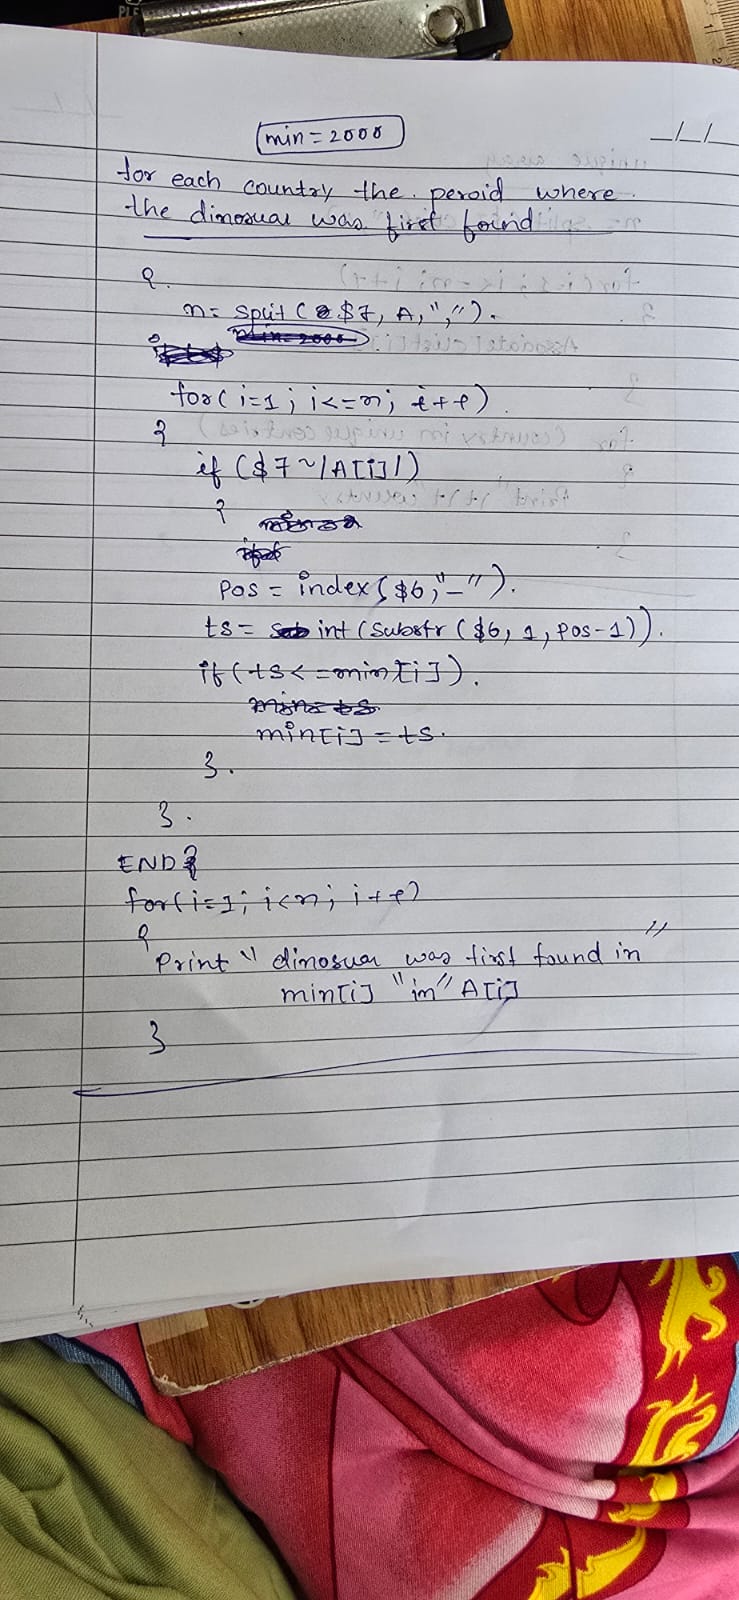 min = 2000
for each country the peroid where
the dinosuar was first found
{
n = split ( $7, A, ",").
for( i=1 ; i<=n; i++)
{
if ($7 ~ /A[i]/)
{
pos = index( $6, "-").
ts = int (substr ($6, 1, pos-1)).
if (ts <= min[i]).
min[i] = ts.
}.
}.
END {
for(i=1; i<n; i++)
{
Print " dinosuar was first found in "
min[i] "in" A[i]
}